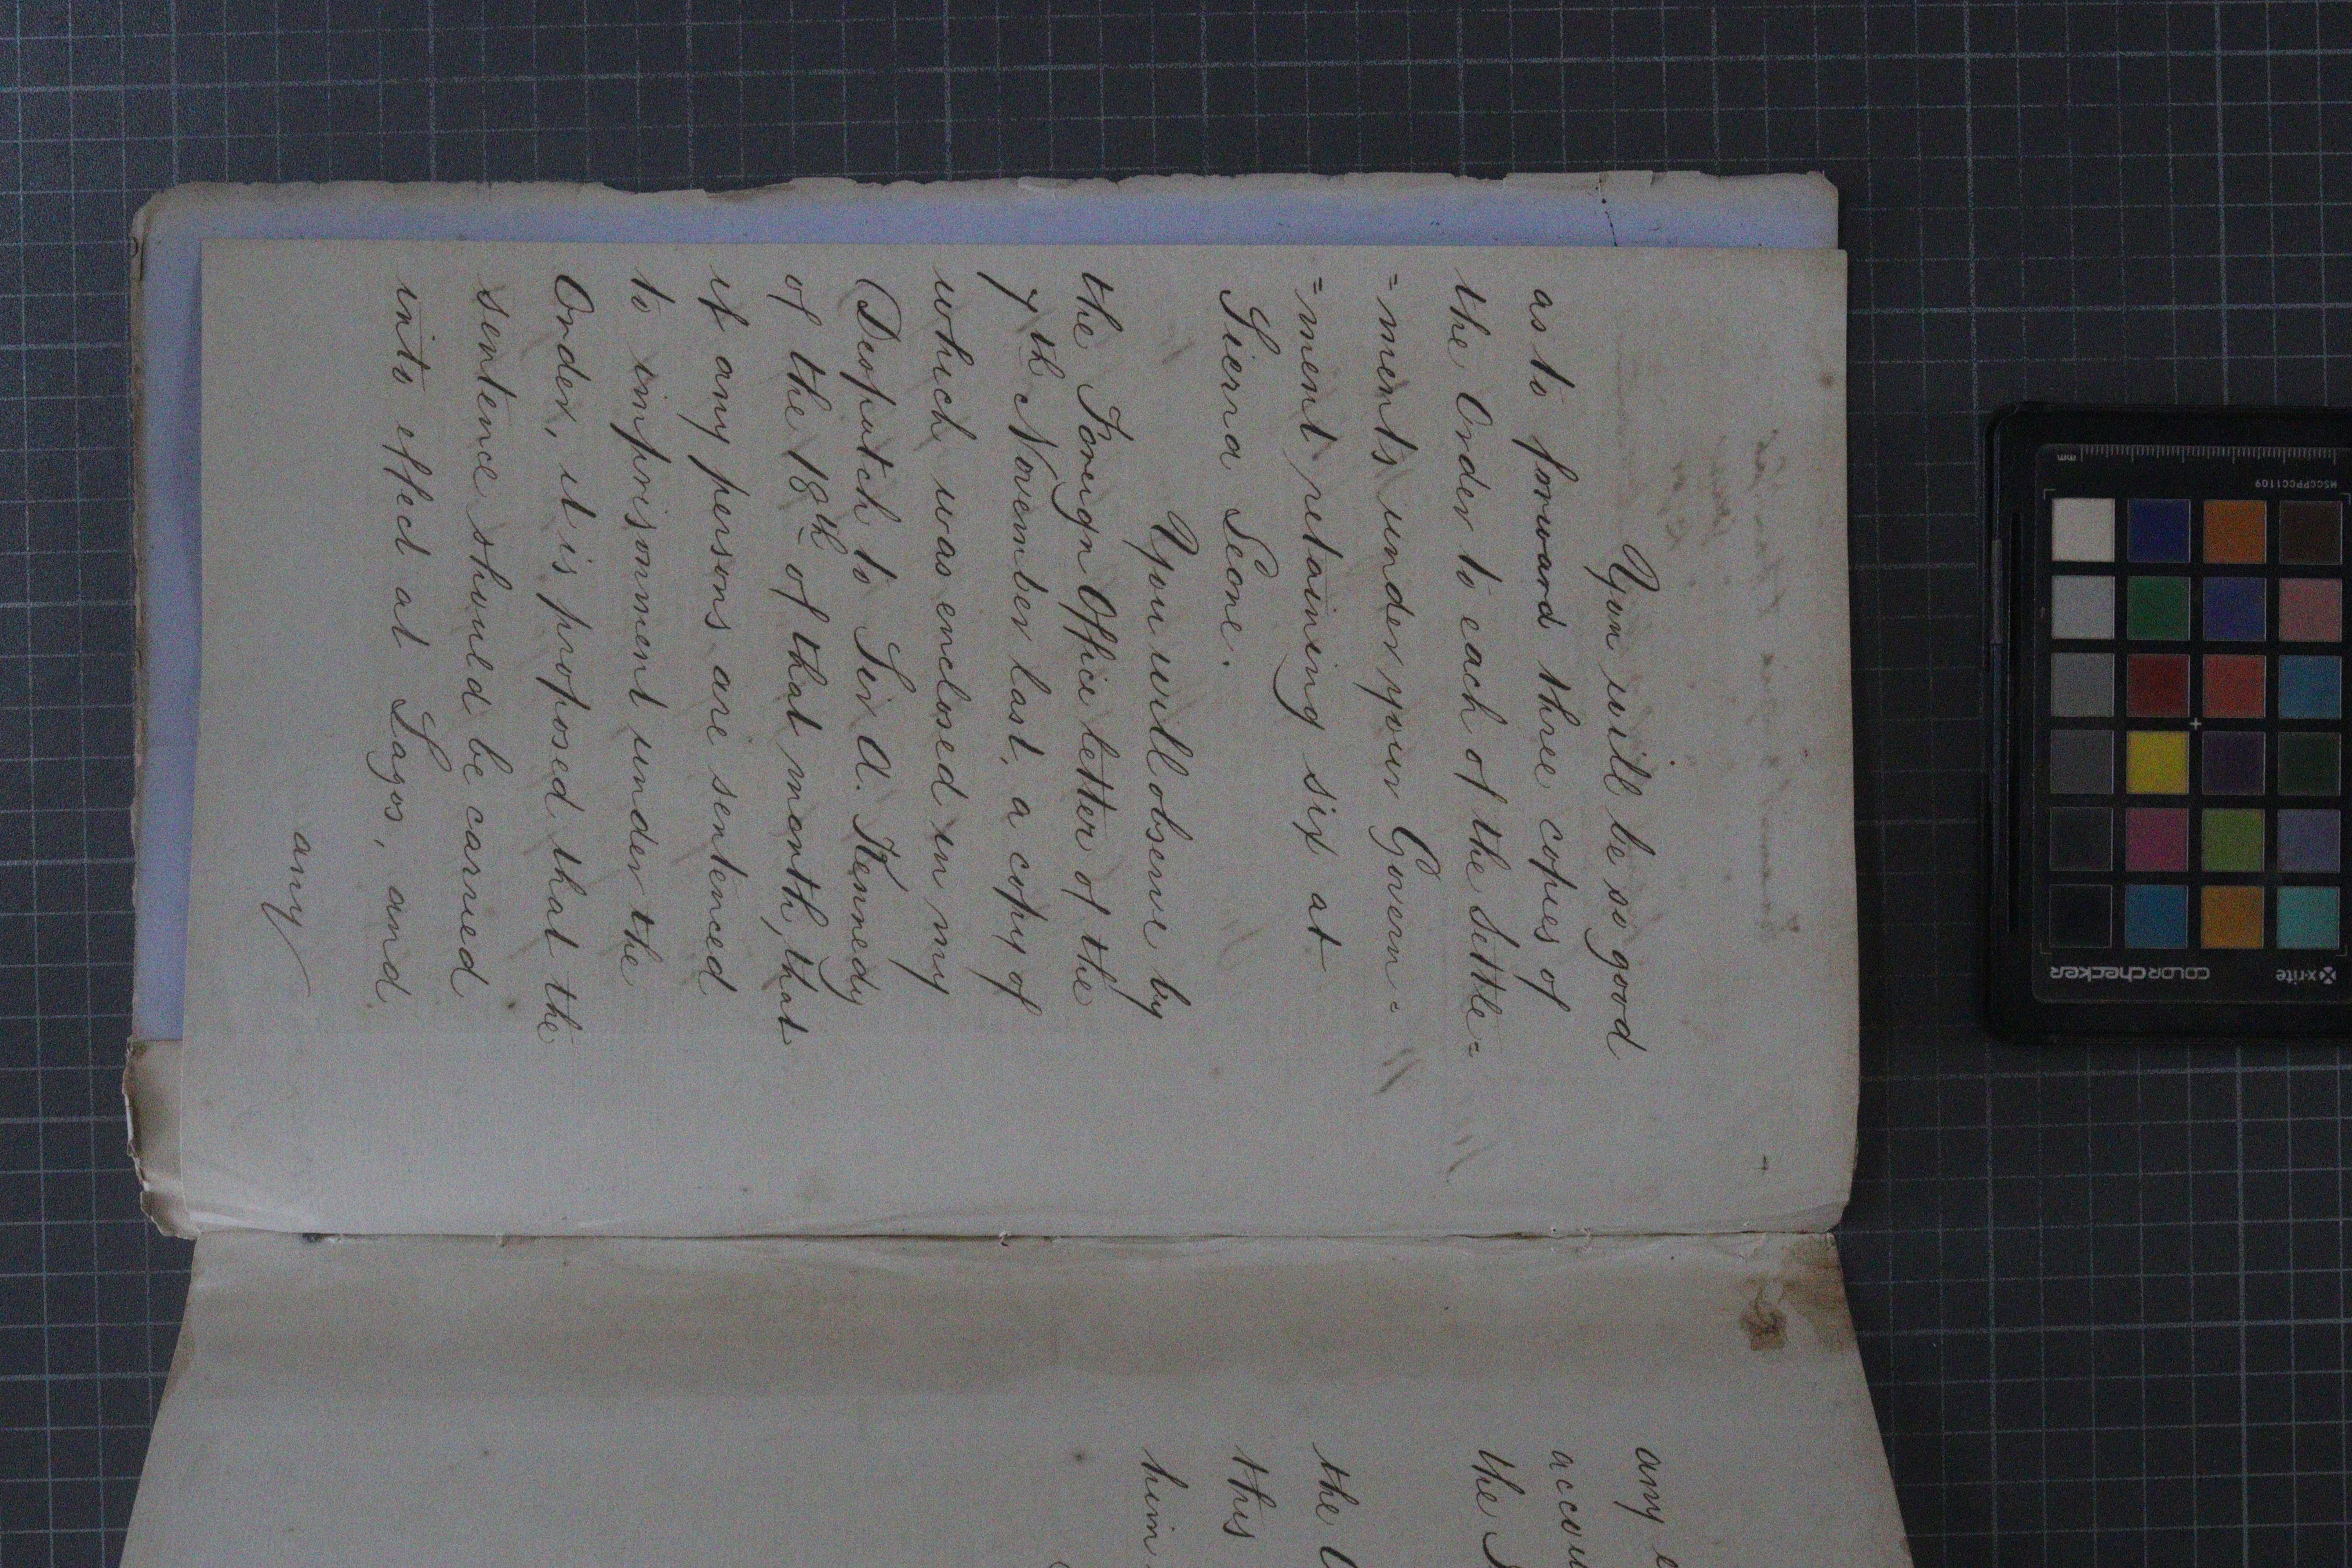 You will be so good
as to forward three copies of
the Order to each of the Settle=
=ments under your Govern=
=ment retaining six at
Sierra Leone.
You will observe by
the Foreign Office letter of the
7th November last, a copy of
which was enclosed in my
Despatch to Sir A. Kennedy
of the 18th of that month, that
if any persons are sentenced
to imprisonment under the
Order, it is proposed that the
sentence should be carried
into effect at Lagos, and
any
any
accou
the
the
this
him
x-rite
colorchecker
MSCCPPCC1109
mm